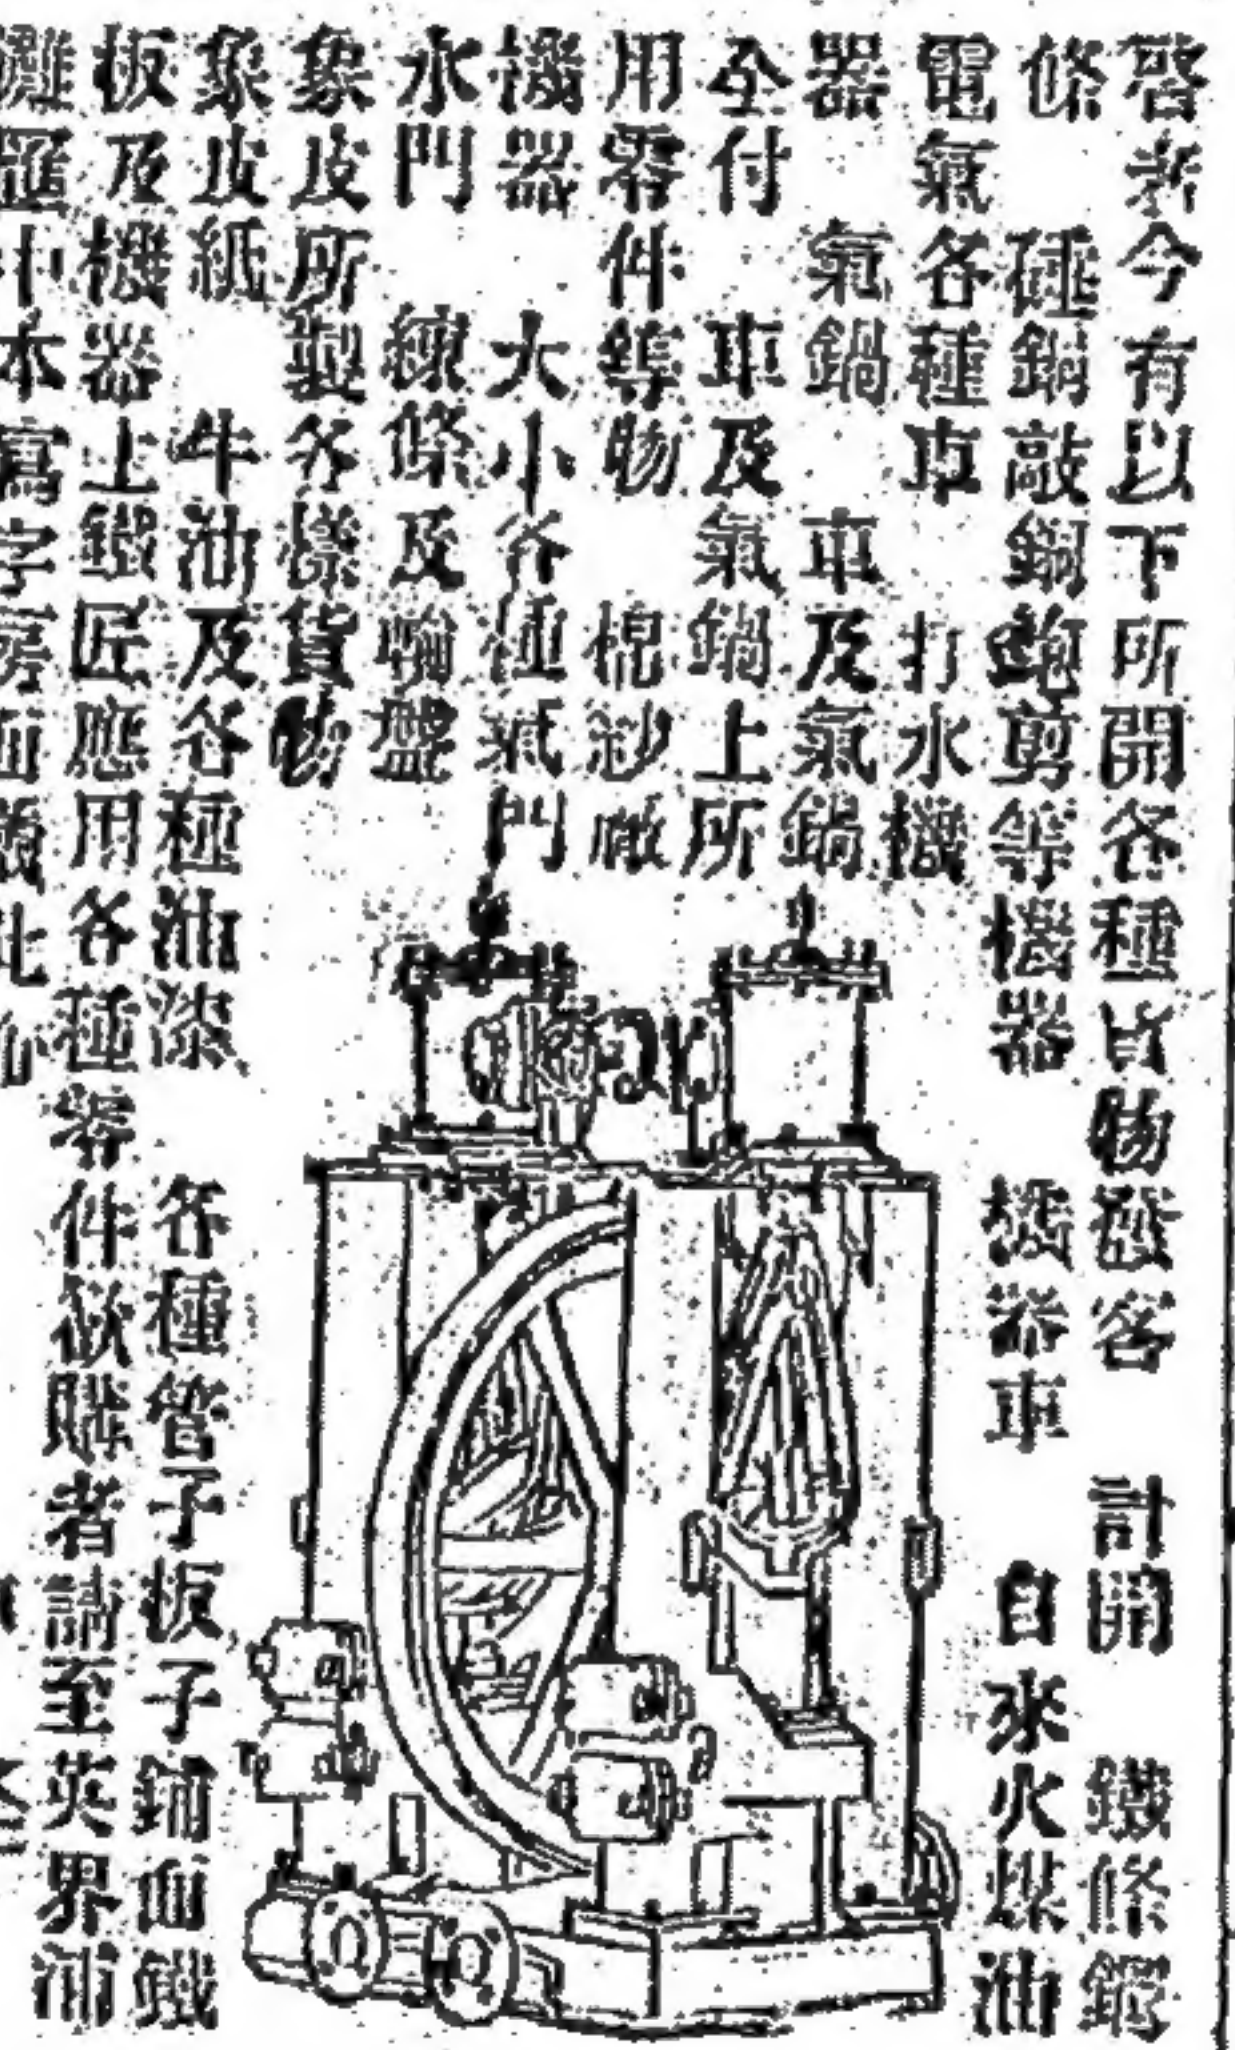 啓者今有以下所開各種貨物發客　計開　鐵條鋼
條　砸鍋敲鍋鉋剪等機器　機器車　自來火煤油
電氣各種車　打水機
器　氣鍋　車及氣鍋
全付　車及氣鍋上所
用零件等物　棉紗廠
機器　大小各種氣門
水門　練條及輪盤
象皮所製各樣貨物
象皮紙　牛油及各種油漆　各種管子板子鋪面鐵
板及機器上鐵匠應用各種零件欲購者請至英界浦
灘匯中本寫字房面議此